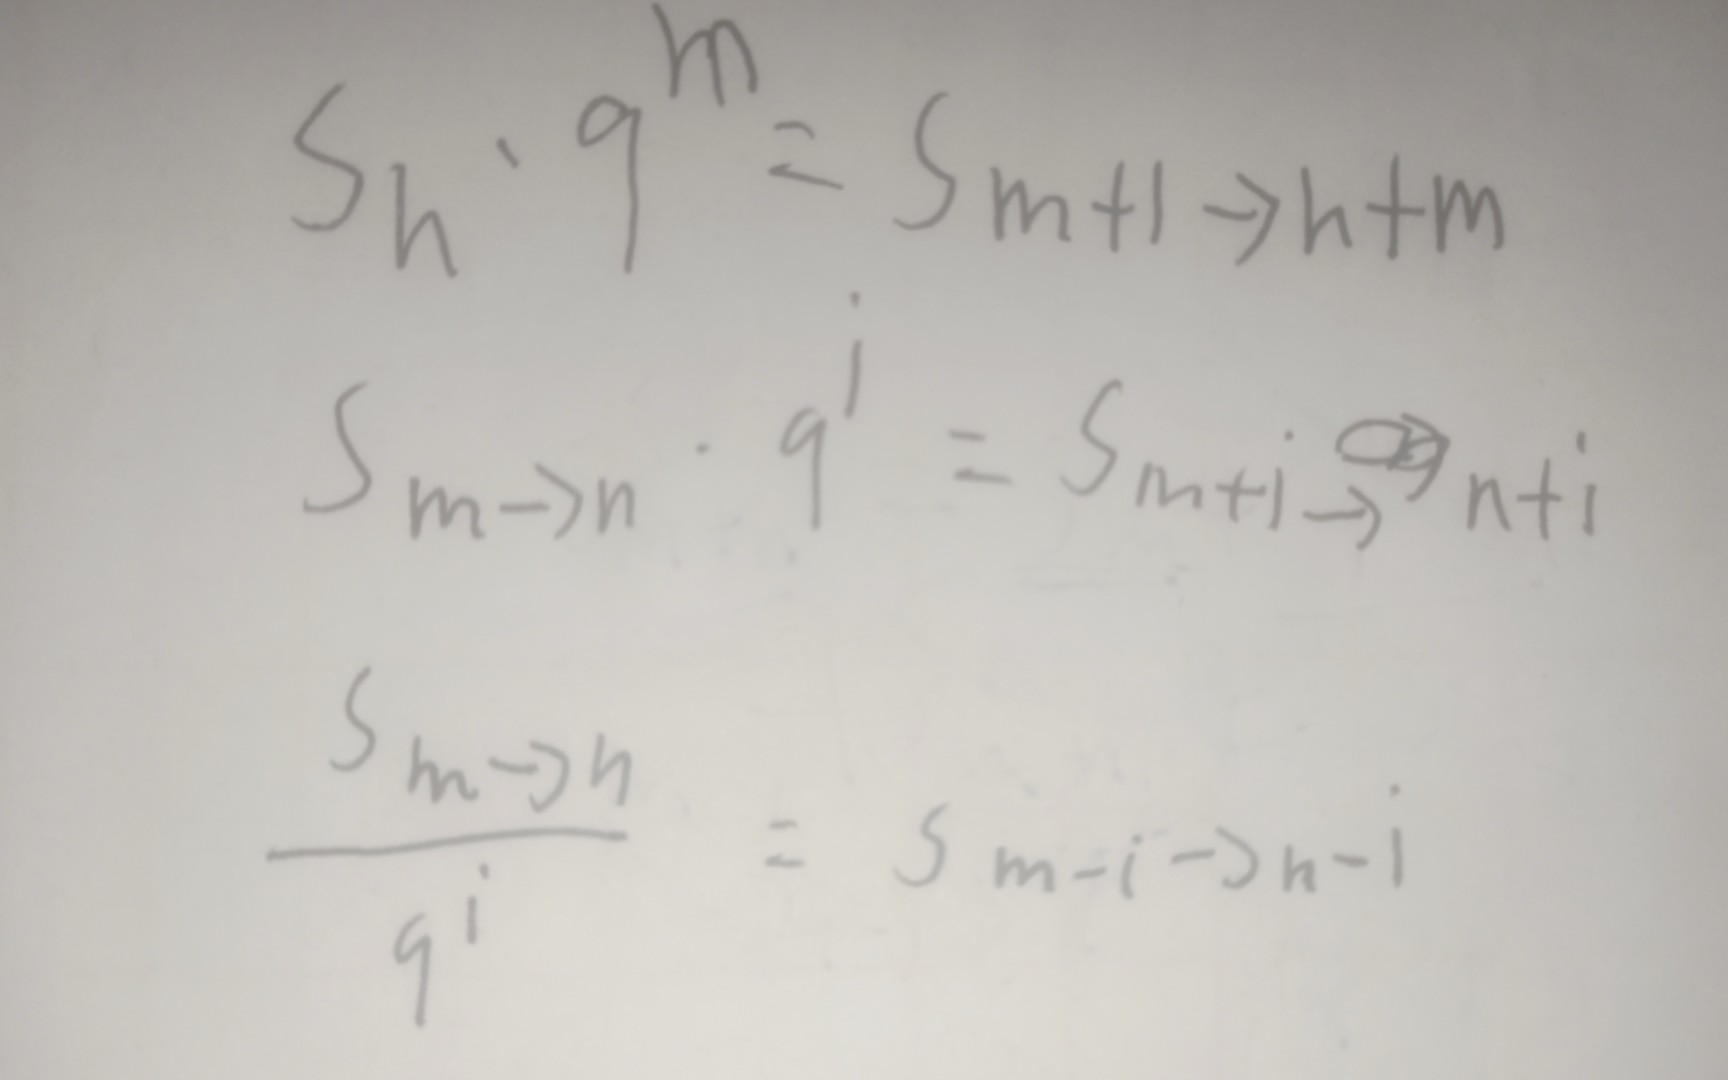 Sₙ · qᵐ = Sₘ₊₁→ₙ₊ₘ
Sₘ→ₙ · qⁱ = Sₘ₊ᵢ→ₙ₊ᵢ
Sₘ→ₙ / qⁱ = Sₘ₋ᵢ→ₙ₋ᵢ